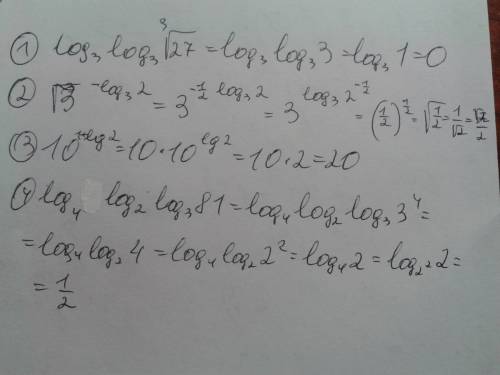 ① log₃ log₃ ∛27 = log₃ log₃ 3 = log₃ 1 = 0
② √3^(-log₃ 2) = 3^(-1/2 log₃ 2) = 3^(log₃ 2^(-1/2)) = (1/2)^(1/2) = √(1/2) = 1/√2 = √2/2
③ 10^(1+lg 2) = 10 · 10^(lg 2) = 10 · 2 = 20
④ log₄ log₂ log₃ 81 = log₄ log₂ log₃ 3⁴ =
= log₄ log₂ 4 = log₄ log₂ 2² = log₄ 2 = log₂² 2 =
= 1/2